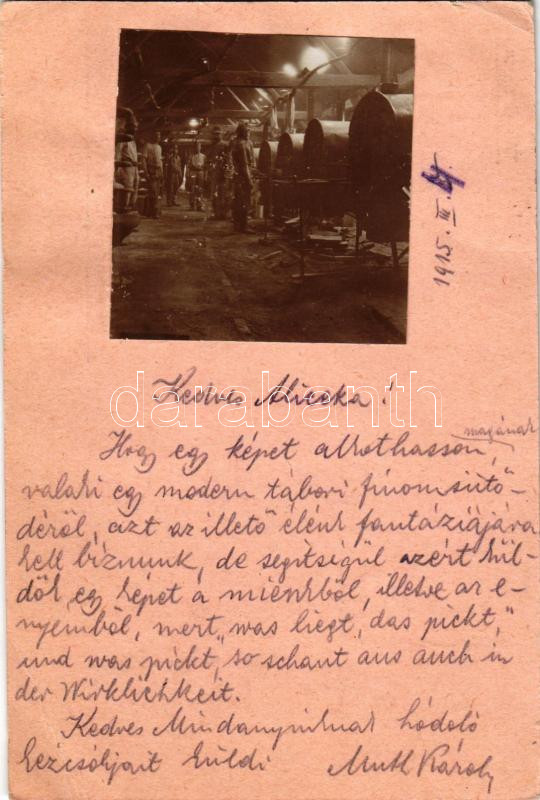 1915. III.
Kedves Miczka!
Hogy egy képet alkothasson magának,
valaki egy modern tábori finomsütő-
déről, azt az illető élénk fantáziájára
kell bíznunk, de segítségül azért kül-
dök egy képet a mienkből, illetve az e-
nyemből, mert „was liegt, das pickt,"
und was pickt, so schaut aus auch in
der Wirklichkeit.
Kedves Mindanyiuknak hódoló
kézcsókjait küldi Muth Károly
darabanth